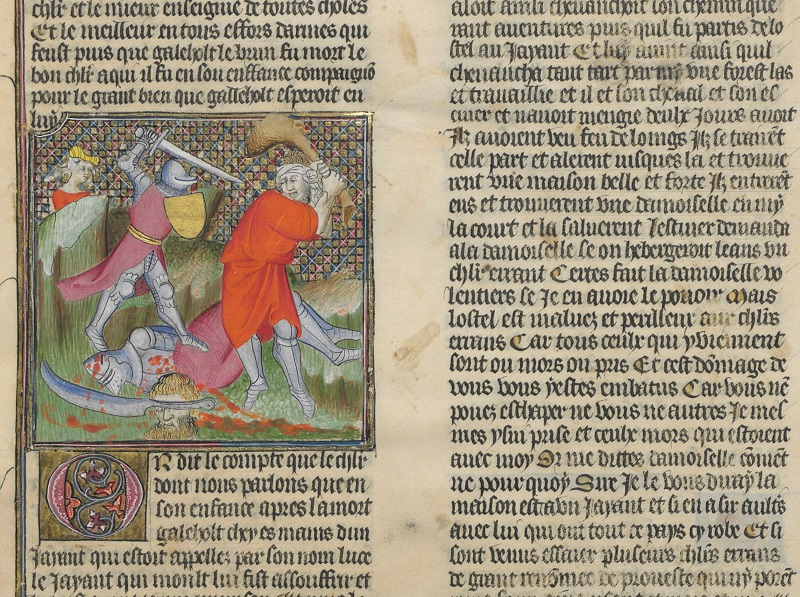 chlr et le mieux enseigne de toutes choses
Et le meilleur en tous effors darmes qui
feust puis que galeholt le brun fu mort le
bon chlr a qui il fu en son enffance compaignõ
pour le grant bien que galleholt esperoit en
luy
Or dit le compte que le chlr
dont nous parlons que en
son enfance apres la mort
galeholt chey es mains dun
Jayant qui estoit appellez par son nom luce
le Jayant qui moult lui fist assouffrir et
aloit ainsi cheuauchoit son chemin que
rant auentures puis quil fu partis de lo
stel au Jayant Et luy auint ainsi quil
cheuaucha tant tart par my vne forest las
et trauaillie et il et son cheual et son es
cuier et nauoit mengie deulx Jours auoit
Ilz auoient veu feu de loings Ilz se traiẽt
celle part et alerent iusques la et trouue
rent vne maison belle et forte Ilz entrerẽt
ens et trouuerent vne damoiselle en my
la court et la saluerent Lescuier demanda
a la damoiselle se on hebergeroit leans vn
chlr errant Certes fait la damoiselle vo
lentiers se Je en auoie le pouoir Mais
lostel est maluez et perilleux aux chlrs
errans Car tous ceulx qui y viennent
sont ou mors ou pris Et cest dõmage de
vous vous yestes embatus Car vous nẽ
pouez eschaper ne vous ne autres Je mes
mes y sui prise et ceulx mors qui estoient
auec moy Or me dittes damoiselle cõmẽt
ne pour quoy Sire Je le vous diray la
maison est a vn Jayant et si en a sir aultrs
auec lui qui ont tout ce pays cy robe Et si
sont venus essaier plusieurs chlrs errans
de grant renõmee de proueste qui ny porẽt